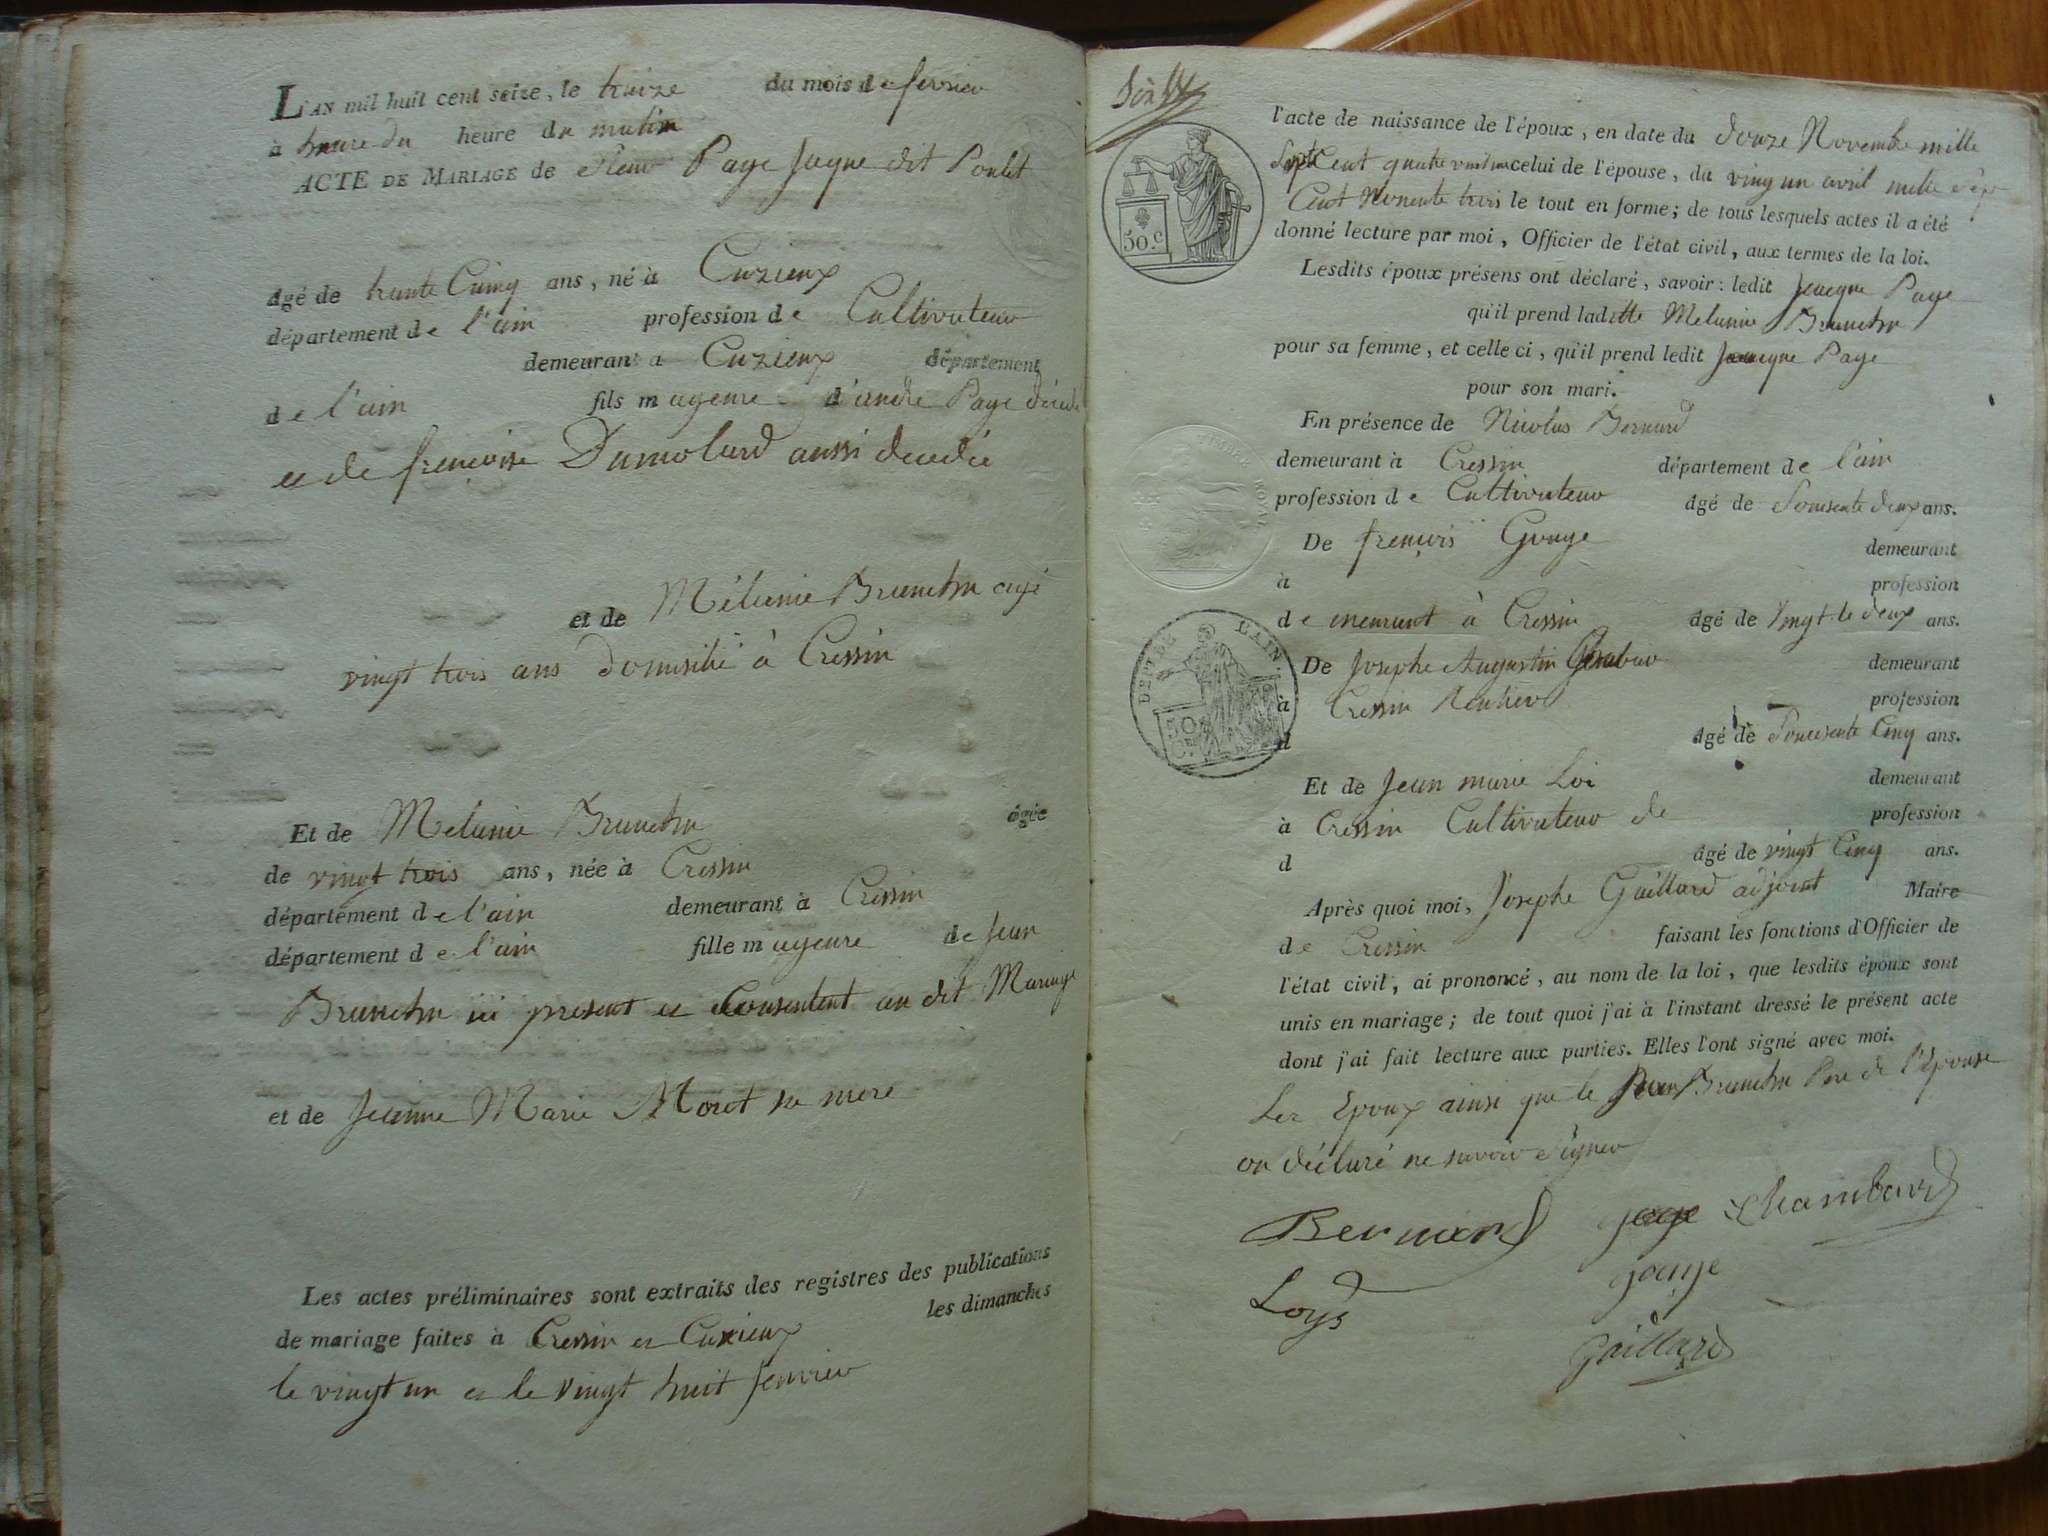 L'AN mil huit cent seize, le treize du mois de fevrier
à heure du heure du matin
ACTE DE MARIAGE de Sieur Page Jaque dit Poulet
âgé de trente Cinq ans, né à Cuzieux
département de l'ain profession de Cultivateur
demeurant a Cuzieux département
de l'ain fils mageure d'andré Page décédé
et de françoise Dumolard aussi decedée
et de Mélanie Brunchu agé
vingt trois ans domisilié à Cressin
Et de Melanie Brunchu âgée
de vingt trois ans, née à Cressin
département de l'ain demeurant à Cressin
département de l'ain fille mageure de Jean
Brunchu ici present et Consentent au dit Mariage
et de Jeanne Marie Moret sa mere
Les actes préliminaires sont extraits des registres des publications
de mariage faites à Cressin et Cuzieux les dimanches
le vingt un et le vingt huit Jenvier
l'acte de naissance de l'époux, en date du douze Novembre mille
Sept Cent quatre vint celui de l'épouse, du ving un avril mille sep
Cent Nonente trois le tout en forme; de tous lesquels actes il a été
donné lecture par moi, Officier de l'état civil, aux termes de la loi.
Lesdits époux présens ont déclaré, savoir: ledit Jacque Page
qu'il prend laditte Melanie Brunchu
pour sa femme, et celle ci, qu'il prend ledit Jacque Page
pour son mari.
En présence de Nicolas Bernard
demeurant à Cressin département de l'ain
profession de Cultivateur âgé de Soixsente deux ans.
De françois Gouge demeurant
à profession
de meurant à Cressin âgé de Vingt le deux ans.
De Josephe Augustin demeurant
à Cressin Rentier profession
d âgé de Soixcente Cinq ans.
Et de Jean marie Loi demeurant
à Cressin Cultivateur de profession
d âgé de vingt Cinq ans.
Après quoi moi, Josephe Gaillard adjoint Maire
de Cressin faisant les fonctions d'Officier de
l'état civil, ai prononcé, au nom de la loi, que lesdits époux sont
unis en mariage; de tout quoi j'ai à l'instant dressé le présent acte
dont j'ai fait lecture aux parties. Elles l'ont signé avec moi.
Les Epoux ainsi que le Jean Brunchu Pere de l'Epouse
on déclaré ne savoir signer
Bernard goge Chambard
Loys gouge
Gaillard
50.c
TIMBRE ROYAL
DEPT DE L'AIN.
50